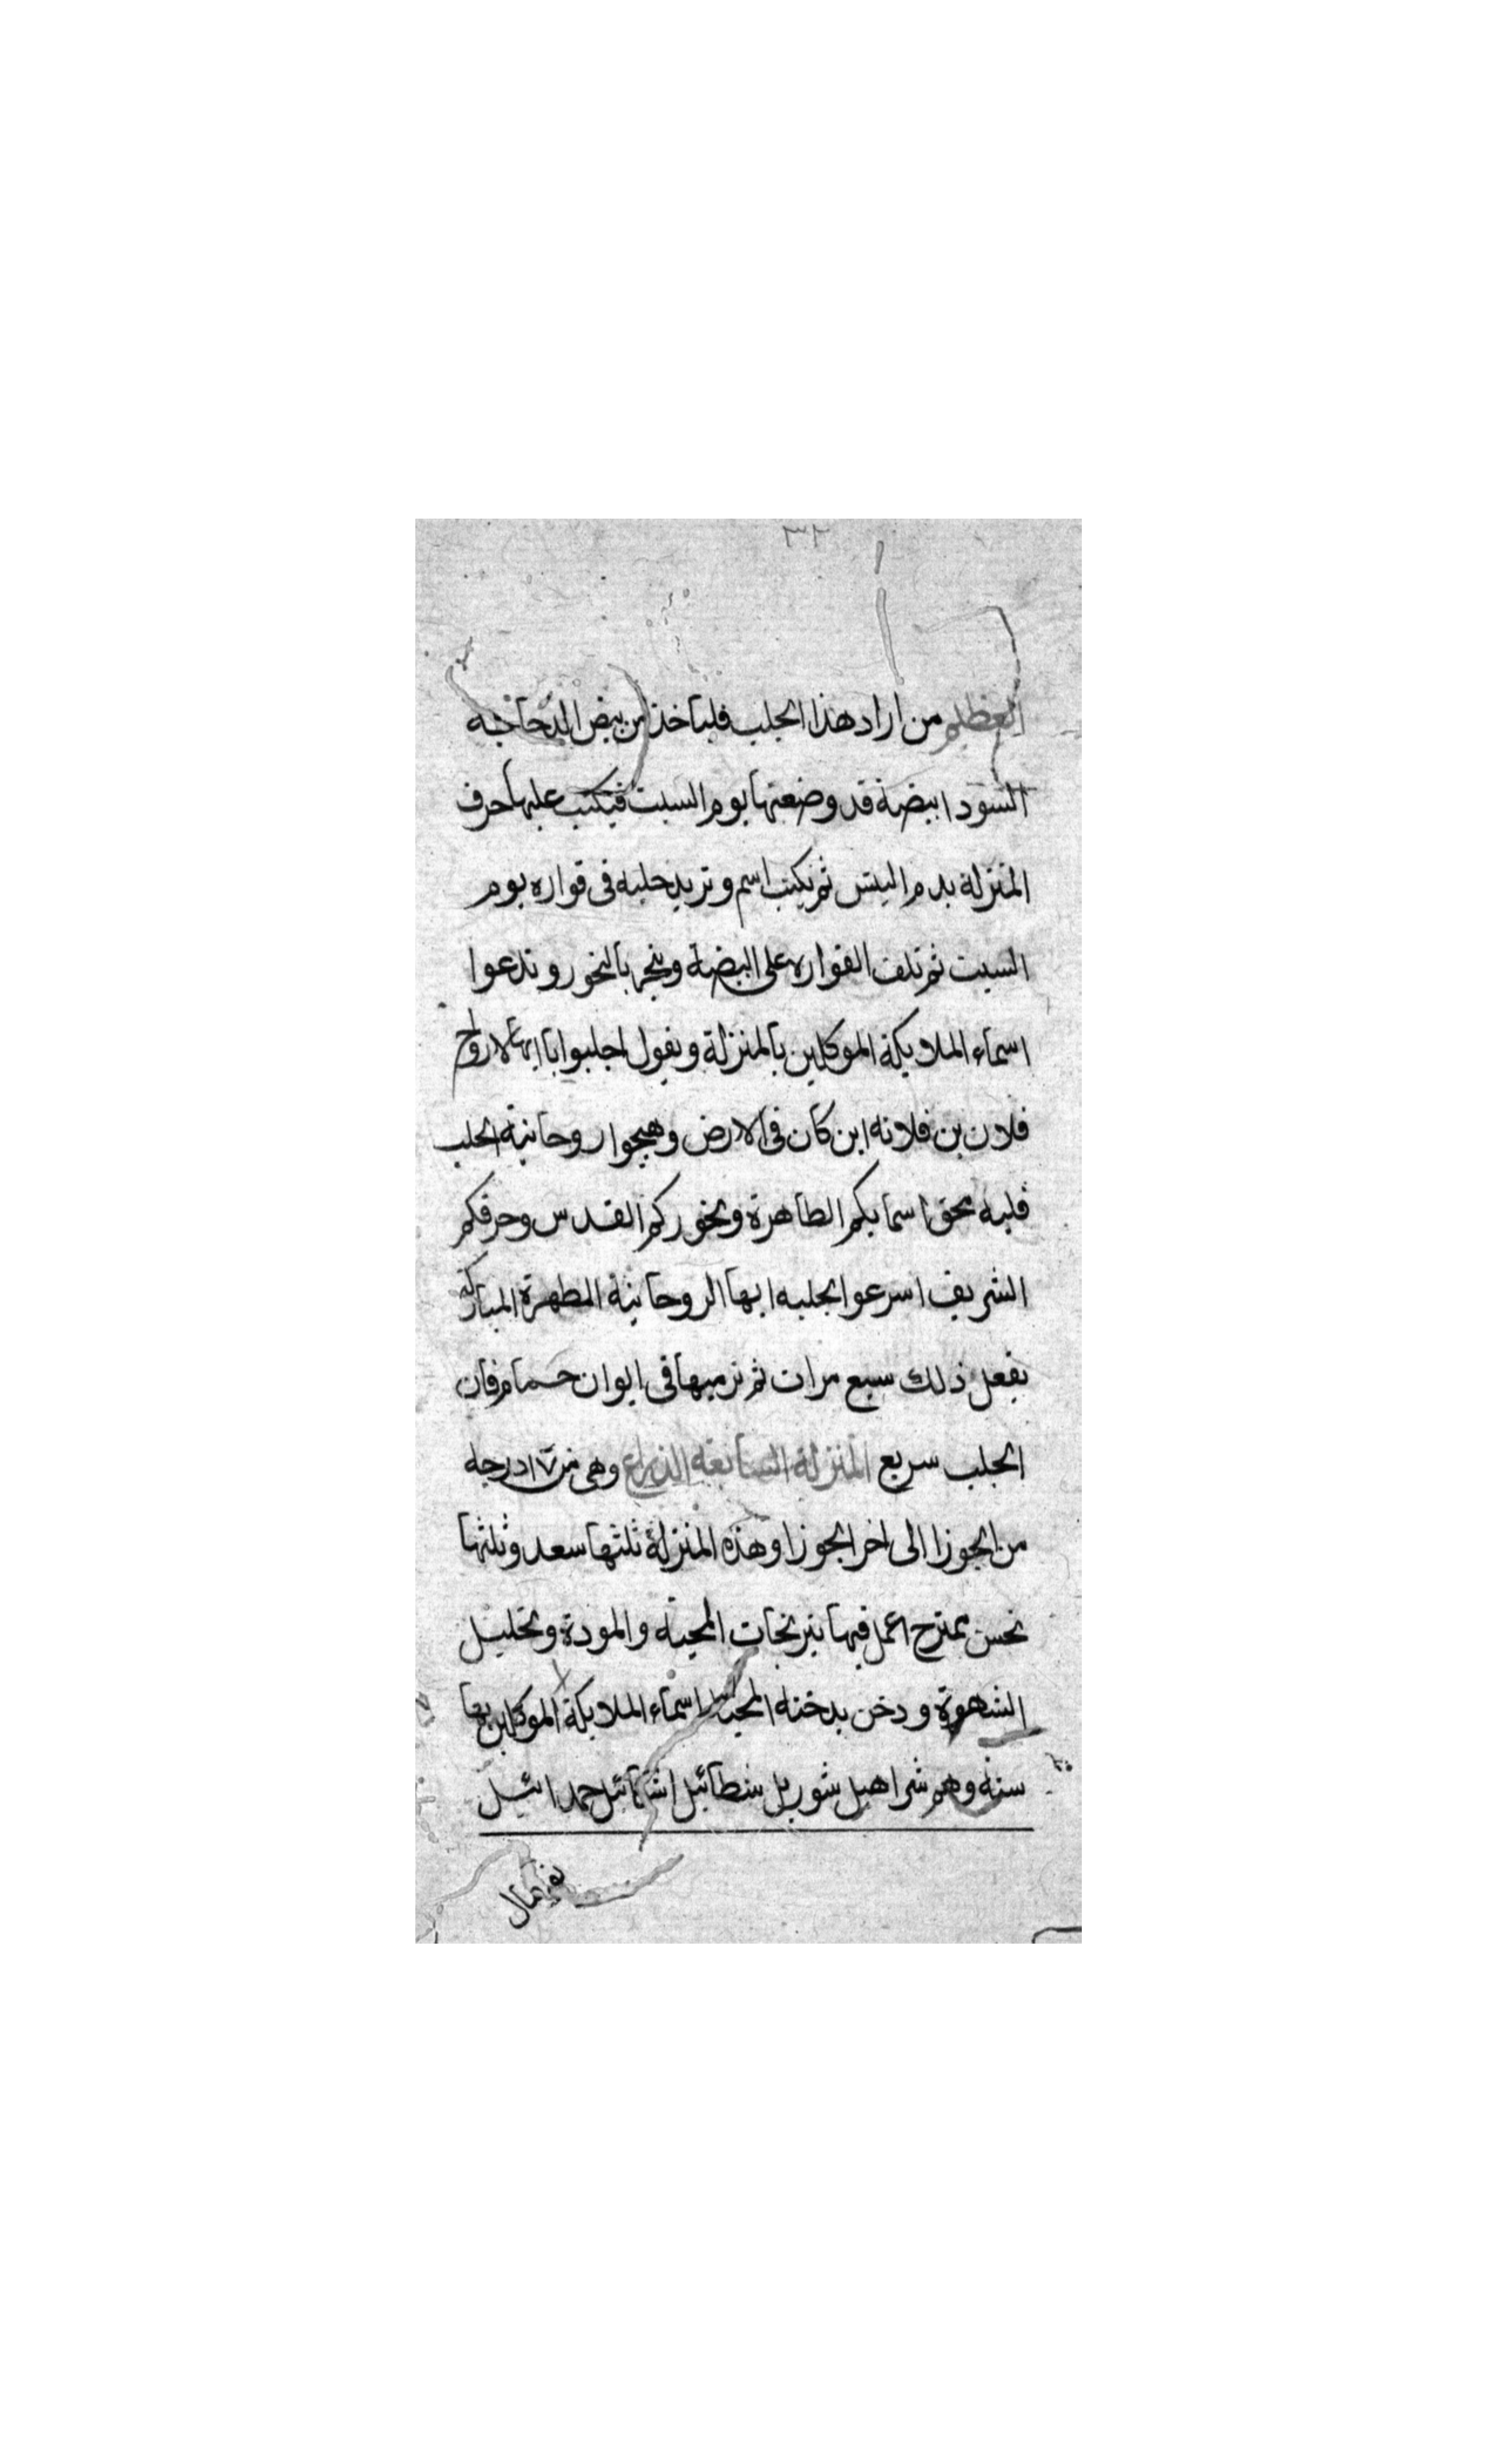 ٣٢
العظيم من اراد هذا الجلب فلياخذ من بيض الدجاجه
السودا بيضة قد وضعتها يوم السبت فيكتب عليها حرف
المنزلة بدم التيس ثم يكتب اسم وتريد جلبه فى قواره يوم
السبت ثم تلف القواره على البيضة ويبخر بالبخور وتدعوا
اسماء الملايكة الموكلين بالمنزلة ويقول اجلبوا يا ايها الارواح
فلان بن فلانه اين كان فى الارض وهيجوا روحانية الجلب
قلبه بحق اسمايكم الطاهرة وبخوركم القدس وحرفكم
الشريف اسرعوا بجلبه ايها الروحانية المطهرة المباركة
يفعل ذلك سبع مرات ثم ترميها فى ايوان حمام فان
الجلب سريع المنزلة السابعة الذراع وهى من ١٧ درجه
من الجوزا الى اخر الجوزا وهذه المنزلة ثلثها سعد وثلثها
نحس ممتزج اعمل فيها نيرنجات المحبة والمودة وتحليل
الشهوة ودخن بدخنه المحبه اسماء الملايكة الموكلين بها
ستة وهم شراهيل شوريل شطائيل اشمائيل حمدائيل